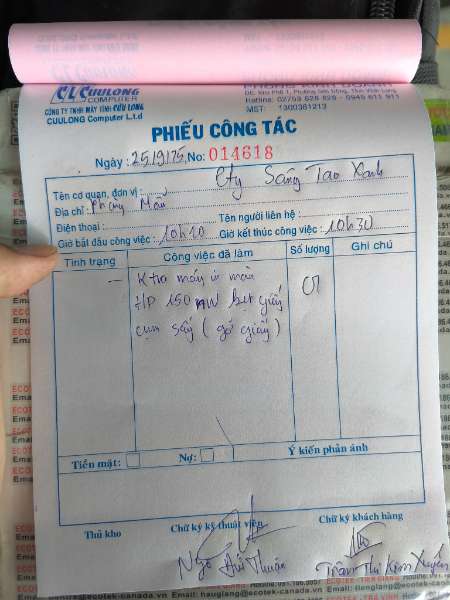 CL CUULONG
COMPUTER
CÔNG TY TNHH MÁY TÍNH CỬU LONG
CUULONG Computer L.t.d
Hotline: 02753 628 628 - 0945 611 911
MST: 1300361213
PHIẾU CÔNG TÁC
Ngày: 25/9/25, No: 014618
Tên cơ quan, đơn vị: Cty Sáng Tạo Xanh
Địa chỉ:
Điện thoại: Tên người liên hệ:
Giờ bắt đầu công việc: 10h10 Giờ kết thúc công việc: 10h30
Tình trạng Công việc đã làm Số lượng Ghi chú
— Ktra máy in màu 01
HP 150 NW kẹt giấy
cụm sấy (gỡ giấy)
Tiền mặt: Nợ: Ý kiến phản ánh
Thủ kho Chữ ký kỹ thuật viên Chữ ký khách hàng
Ngô Đức Thuận Trần Thị Kim Xuyến